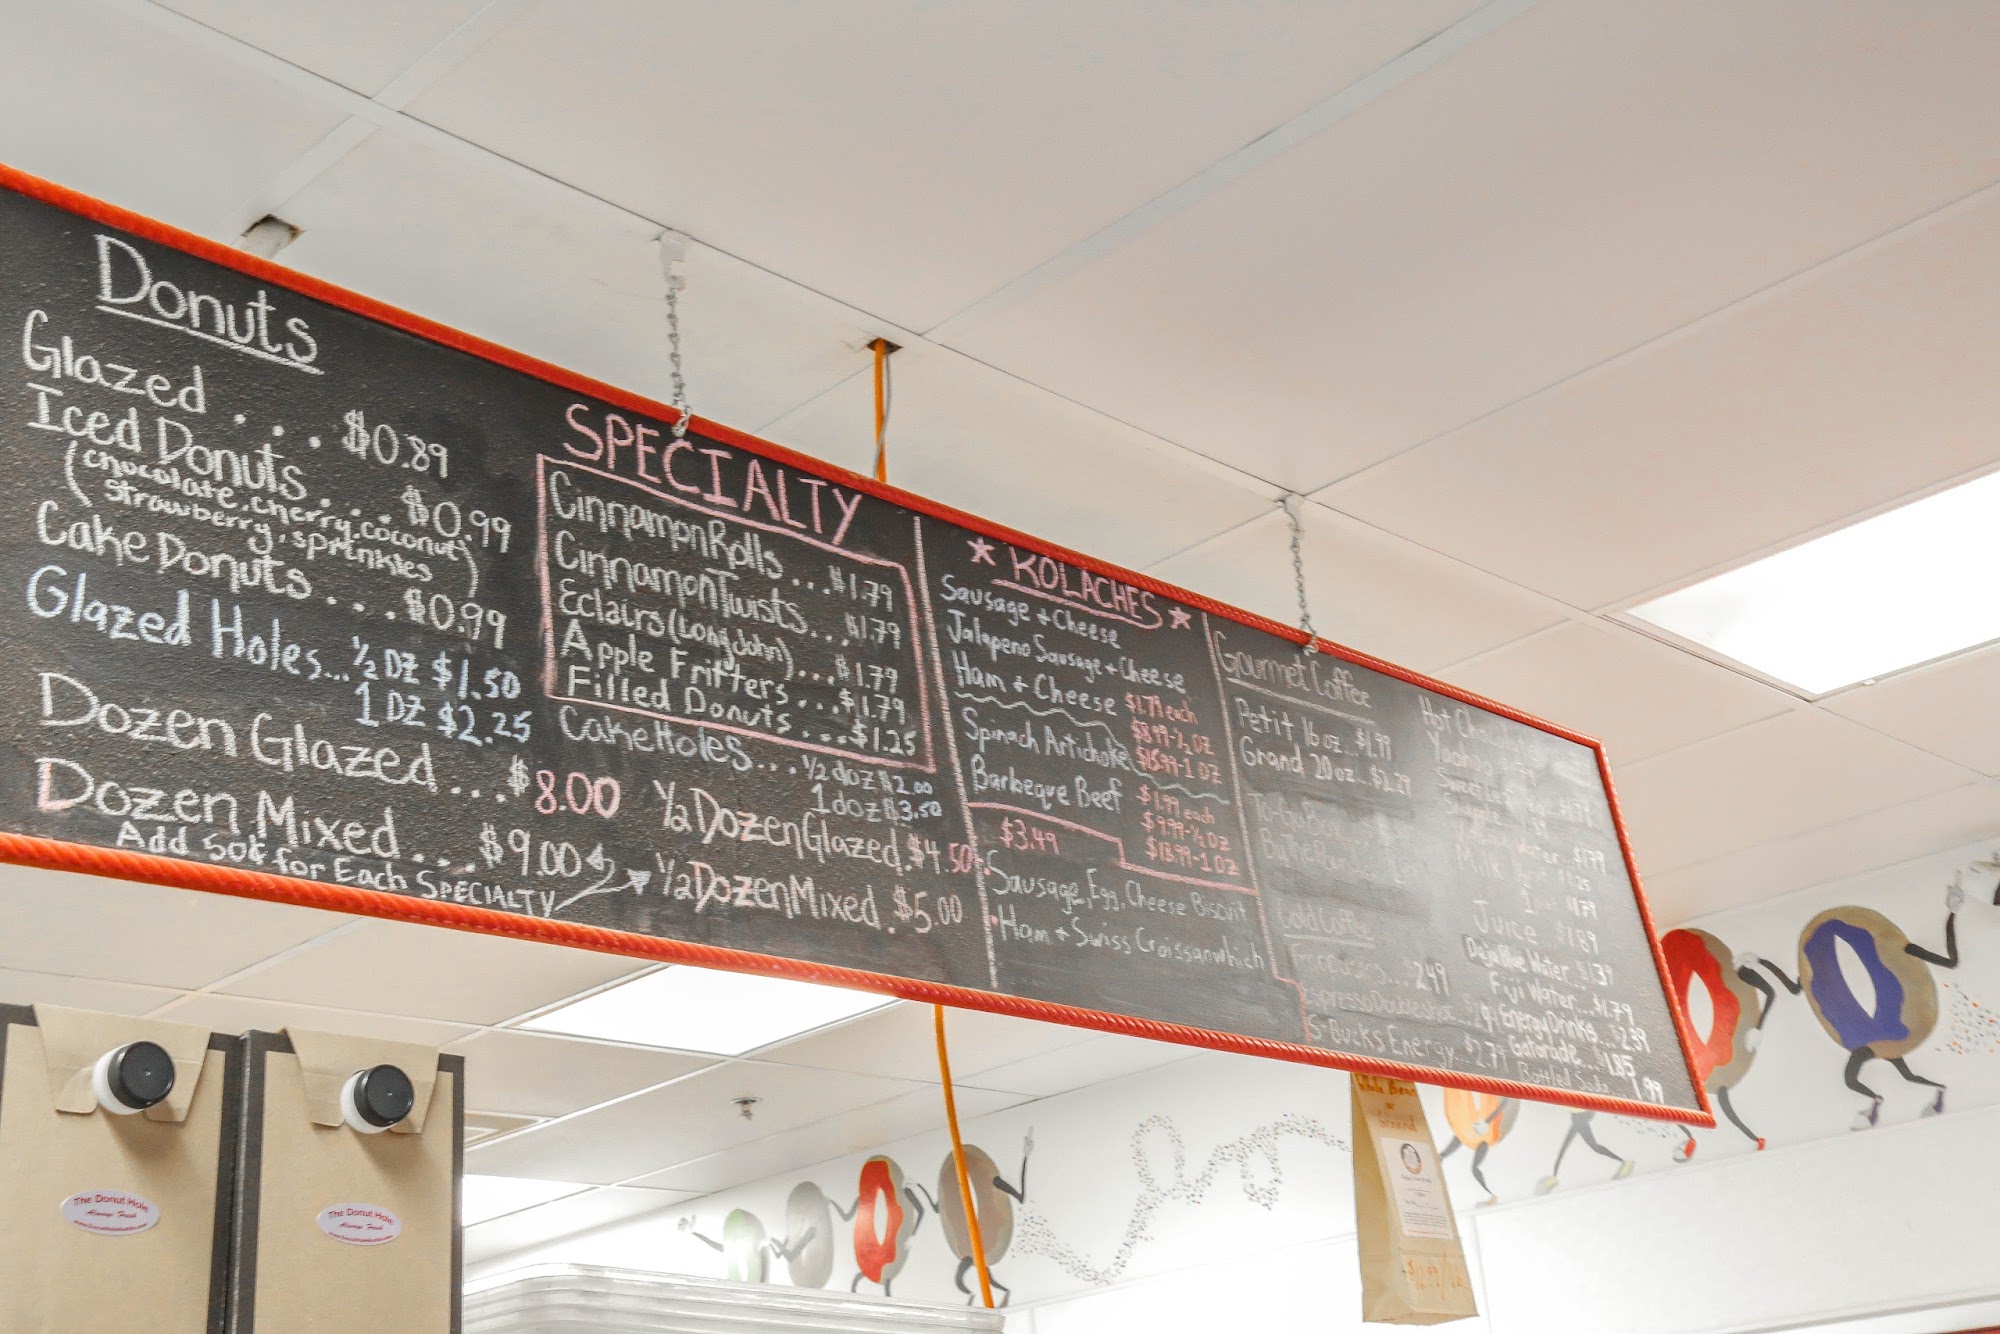 Donuts
Glazed . . . $0.89
Iced Donuts . . . . $0.99
(chocolate, cherry, coconut,
strawberry, sprinkles)
Cake Donuts . . . . $0.99
Glazed Holes... ½ DZ $1.50
1 DZ $2.25
Dozen Glazed . . . $8.00
Dozen Mixed . . . . $9.00
Add 50¢ for Each SPECIALTY
SPECIALTY
Cinnamon Rolls . . . $1.79
Cinnamon Twists . . . $1.79
Eclairs (Long John) . . . $1.79
Apple Fritters . . . $1.79
Filled Donuts . . . $1.25
Cake Holes . . . ½ doz $2.00
1 doz $3.50
½ Dozen Glazed. $4.50
½ Dozen Mixed. $5.00
KOLACHES
Sausage + Cheese
Jalapeno Sausage + Cheese
Ham + Cheese $1.79 each
$8.99-½ DZ
$15.99-1 DZ
Spinach Artichoke
Barbeque Beef $1.99 each
$9.99-½ DZ
1 DZ
$3.49
Sausage, Egg, Cheese Biscuit
Ham + Swiss Croissanwhich
Gourmet Coffee
Petit 16 oz... $1.99
Grand 20 oz... $2.29
To-Go Box
Cold Coffee
$2.49
Espresso Doubleshot
S-Bucks Energy... $2.79
Hot Chocolate
Yoohoo
Milk
Juice $1.89
Deja Blue Water $1.37
Fiji Water... $1.79
Energy Drinks... $2.39
Gatorade... $1.85
Bottled Soda 1.99
The Donut Hole
Always Fresh
The Donut Hole
Always Fresh
Whole Bean
or
Ground